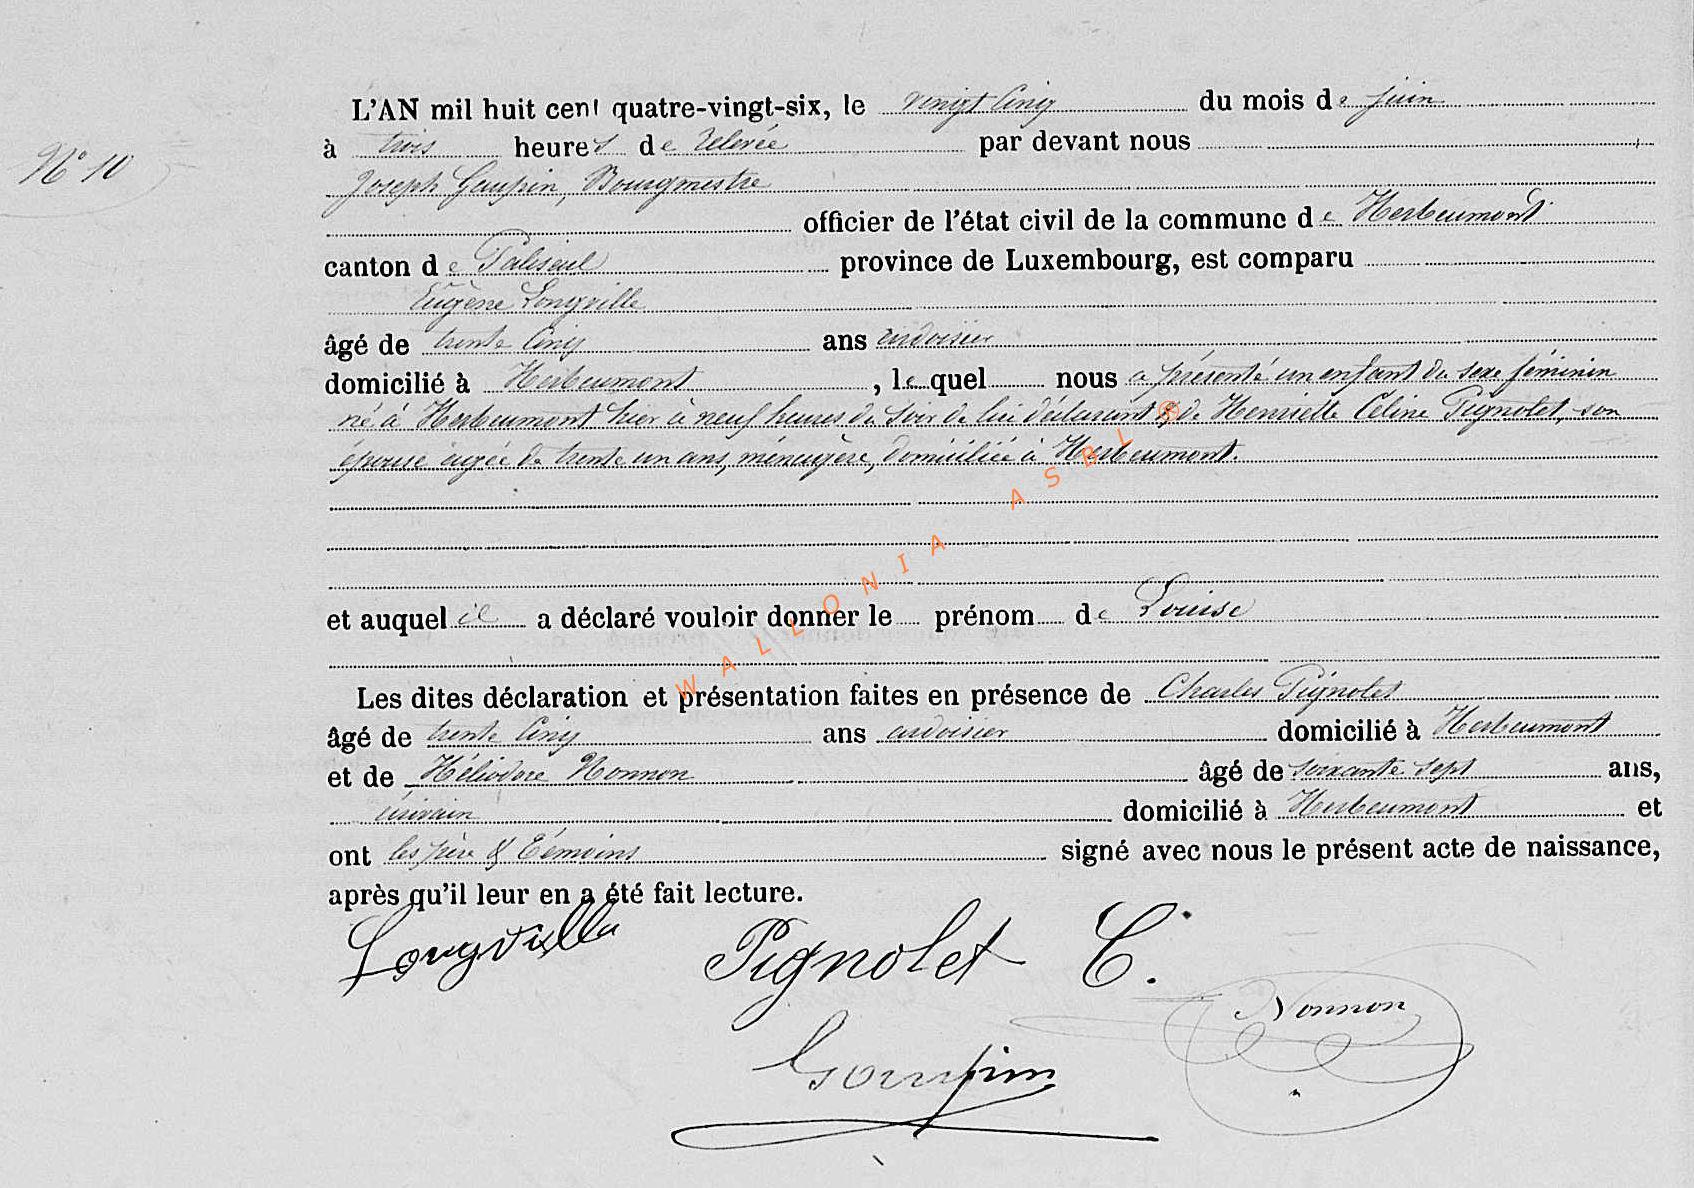 N° 10
L'AN mil huit cent quatre-vingt-six, le vingt cinq du mois de juin
à trois heures de relevée par devant nous
Joseph Goupin, Bourgmestre
officier de l'état civil de la commune de Herbeumont
canton de Paliseul province de Luxembourg, est comparu
Eugène Longville
âgé de trente cinq ans ardoisier
domicilié à Herbeumont, lequel nous a présenté un enfant du sexe féminin
né à Herbeumont hier à neuf heures du soir de lui déclarant & de Henriette Céline Pignolet, son
épouse âgée de trente un ans, ménagère, domiciliée à Herbeumont.
et auquel il a déclaré vouloir donner le prénom de Louise
Les dites déclaration et présentation faites en présence de Charles Pignolet
âgé de trente cinq ans ardoisier domicilié à Herbeumont
et de Héliodore Nonnon âgé de soixante sept ans,
écrivain domicilié à Herbeumont et
ont les père & témoins signé avec nous le présent acte de naissance,
après qu'il leur en a été fait lecture.
Longville Pignolet C.
Nonnon
Goupin
WALLONIA ASBL ®